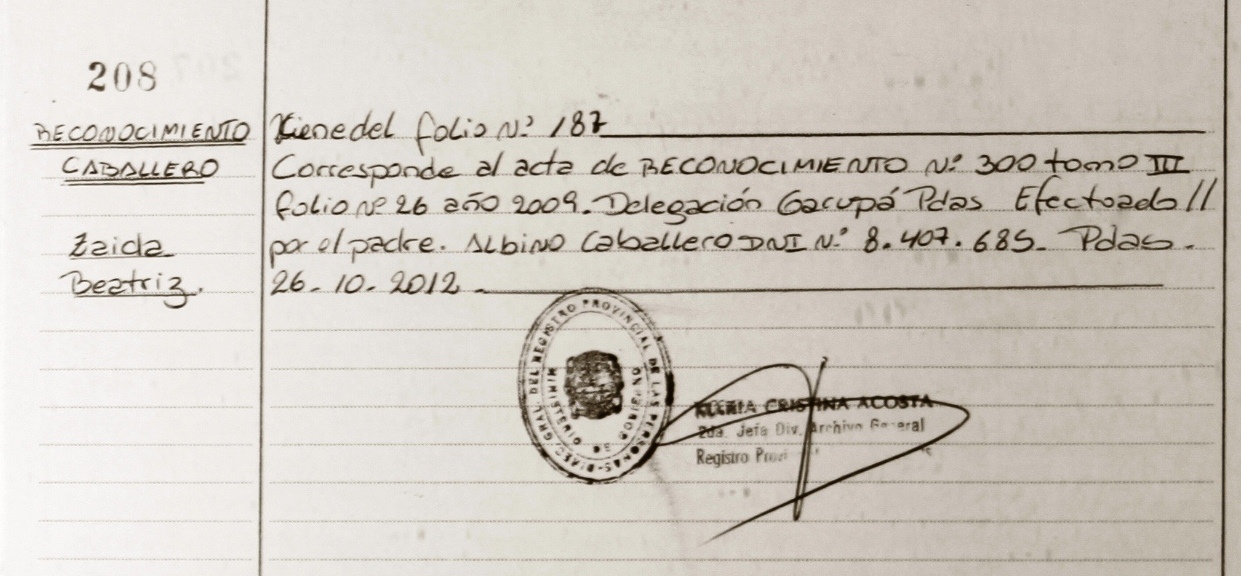 208
RECONOCIMIENTO
CABALLERO
Zaida
Beatriz.
Viene del folio Nº 187
Corresponde al acta de RECONOCIMIENTO Nº 300 tomo III
folio Nº 26 año 2009. Delegación Garupá Pdas Efectuado //
por el padre. Albino Caballero DNI Nº 8.407.685. Pdas.
26-10-2012
DIREC. GRAL. DEL REGISTRO PROVINCIAL DE LAS PERSONAS
MINISTERIO DE GOBIERNO
CRISTINA ACOSTA
2da. Jefa Div. Archivo General
Registro